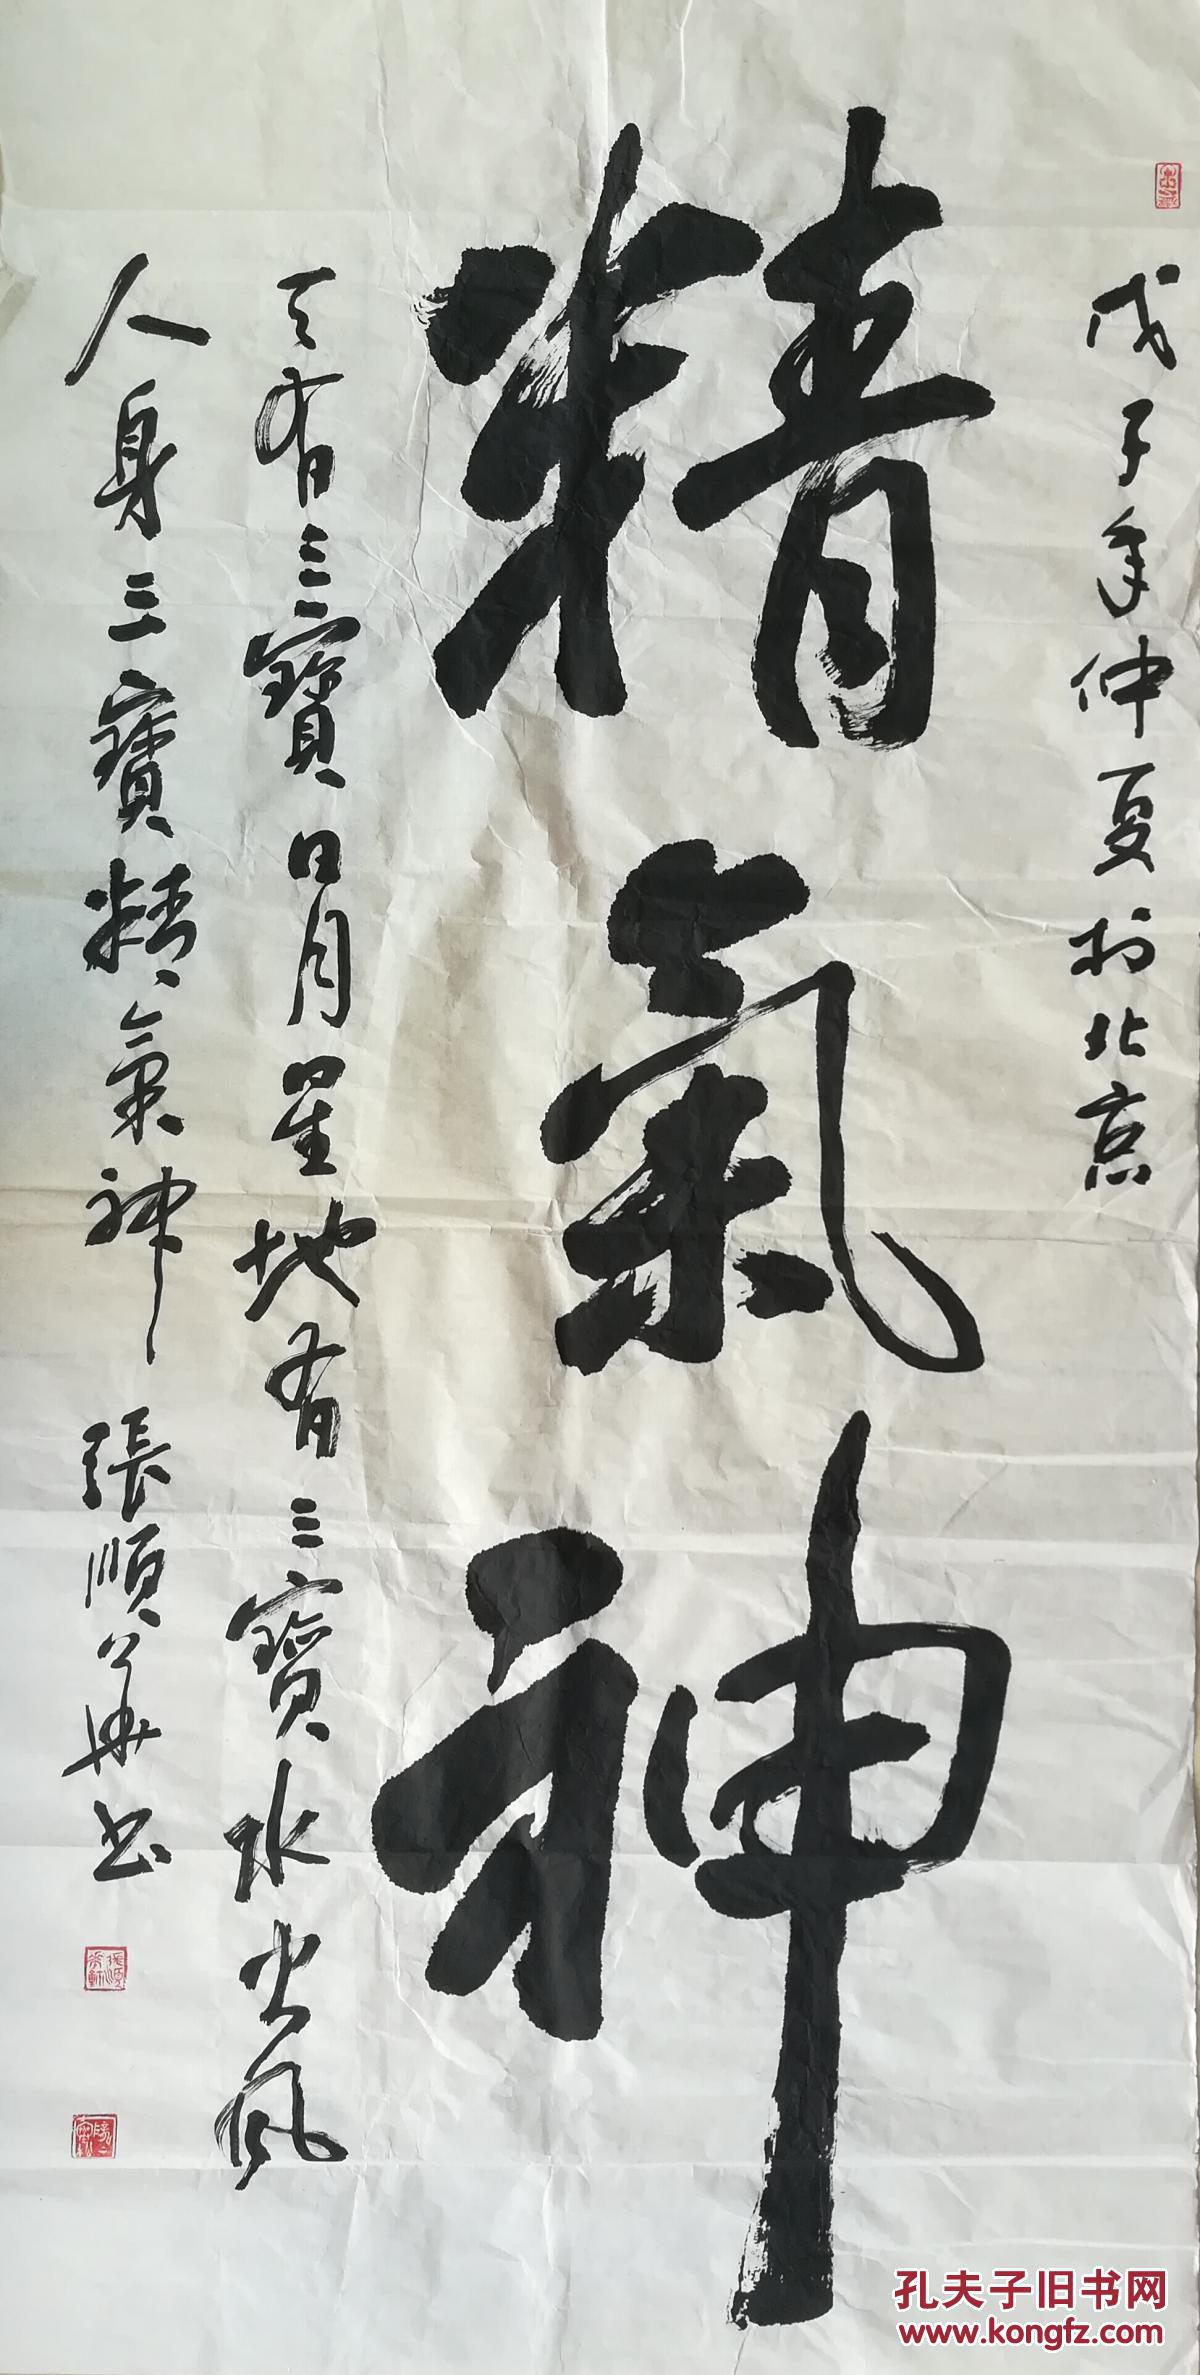 戊子年仲夏於北京
精氣神
天有三寶日月星地有三寶水火風
人身三寶精氣神 張順華書
孔夫子旧书网
www.kongfz.com